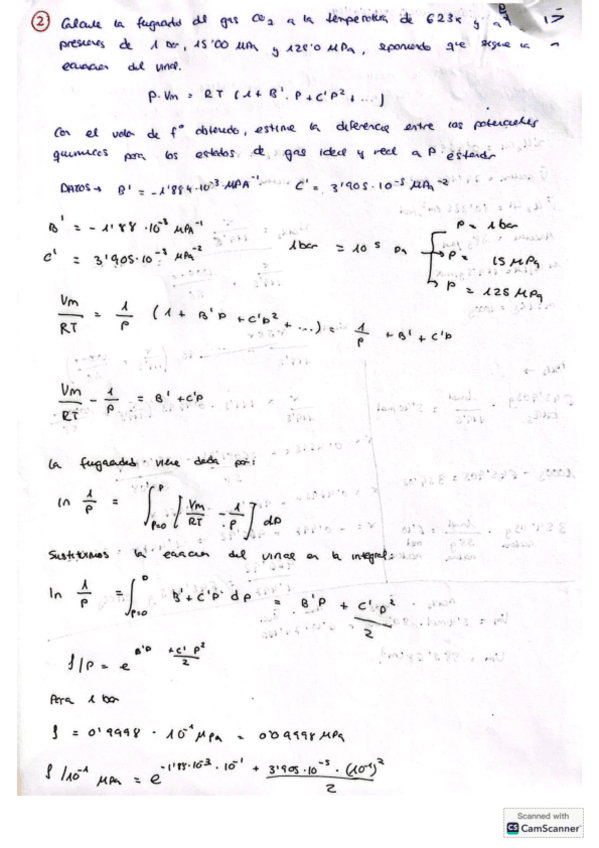 ② Calcule la fugacidad del gas CO₂ a la temperatura de 623K y a
presiones de 1 bar, 15'00 MPa y 125'0 MPa, suponiendo que sigue la
ecuacion del virial.
P·Vm = RT (1 + B'·P + C'P² + ...)
Con el valor de fº obtenido, estime la diferencia entre los potenciales
quimicos para los estados de gas ideal y real a P estandar
DATOS → B' = -1'884·10⁻³ MPA⁻¹ C' = 3'905·10⁻⁵ MPa⁻²
B' = -1'88·10⁻³ MPa⁻¹
C' = 3'905·10⁻⁵ MPa⁻²
1 bar = 10⁵ Pa
P = 1 bar
P = 15 MPa
P = 125 MPa
Vm/RT = 1/P (1 + B'P + C'P² + ...) = 1/P + B' + C'P
Vm/RT - 1/P = B' + C'P
La fugacidad viene dada por:
ln f/P = ∫P=0^P [Vm/RT - 1/P] dP
Sustituimos la ecuacion del virial en la integral:
ln f/P = ∫P=0^P B' + C'P dP = B'P + C'P²/2
f/P = e^(B'P + C'P²/2)
Para 1 bar
f = 0'9998 · 10⁻¹ MPa = 0'09998 MPa
f/10⁻¹ MPa = e^(-1'88·10⁻³·10⁻¹ + 3'905·10⁻⁵·(10⁻¹)²/2)
Scanned with
CS CamScanner